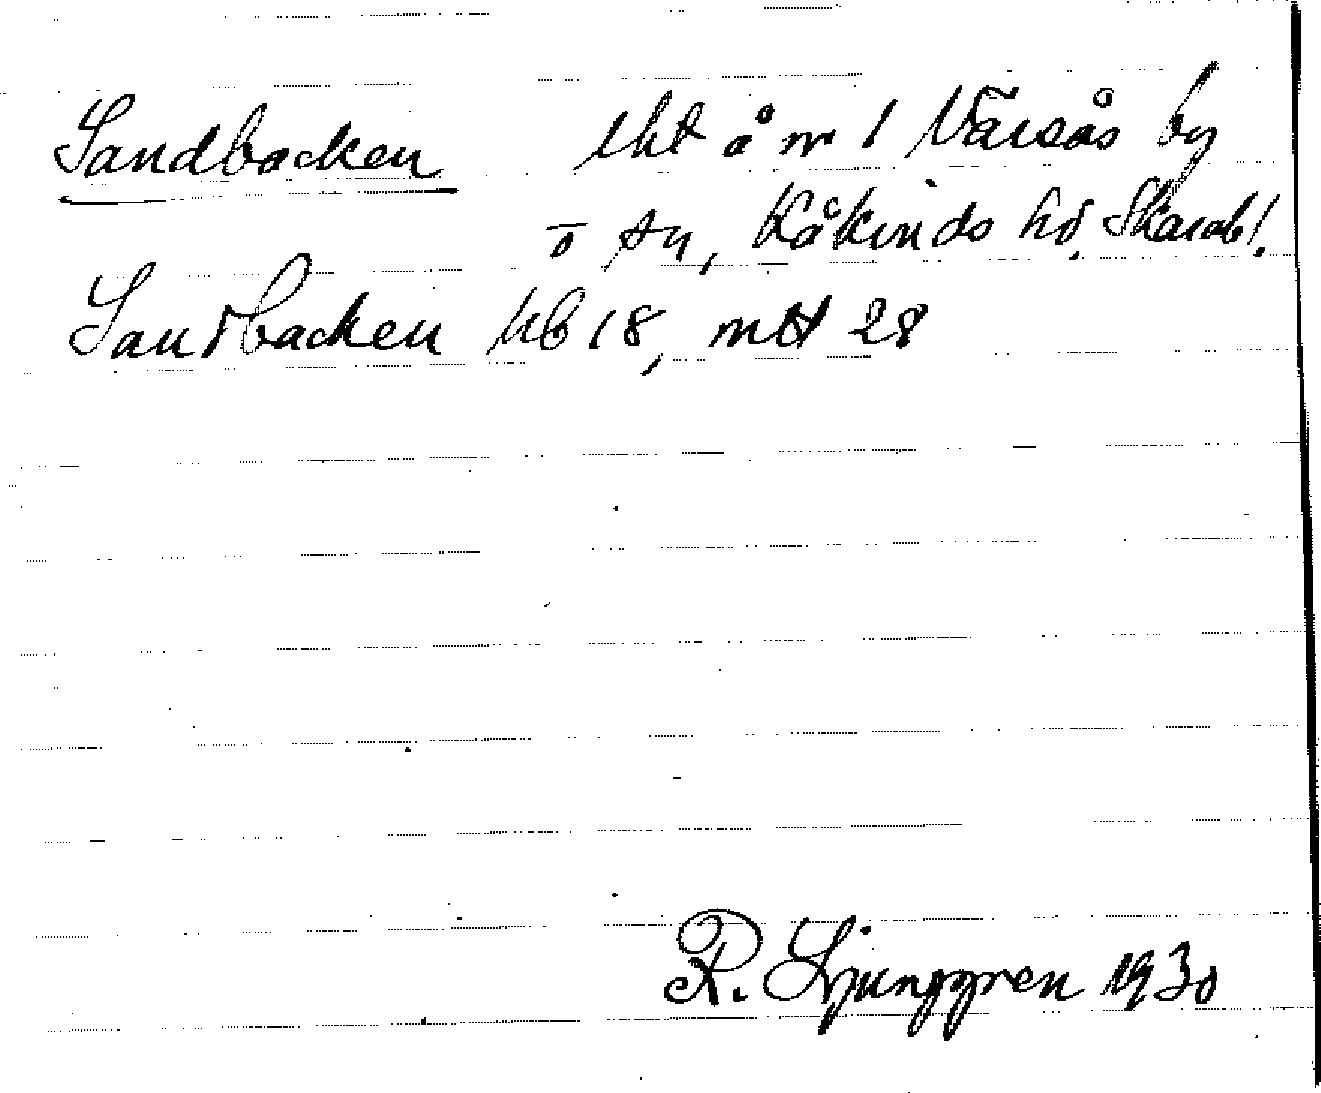 Sandbacken lht å nr 1 Värsås by
o sn, Kåkinds hd, Skarab l.
Sandbacken kb 18, mtl 28
R. Ljunggren 1930